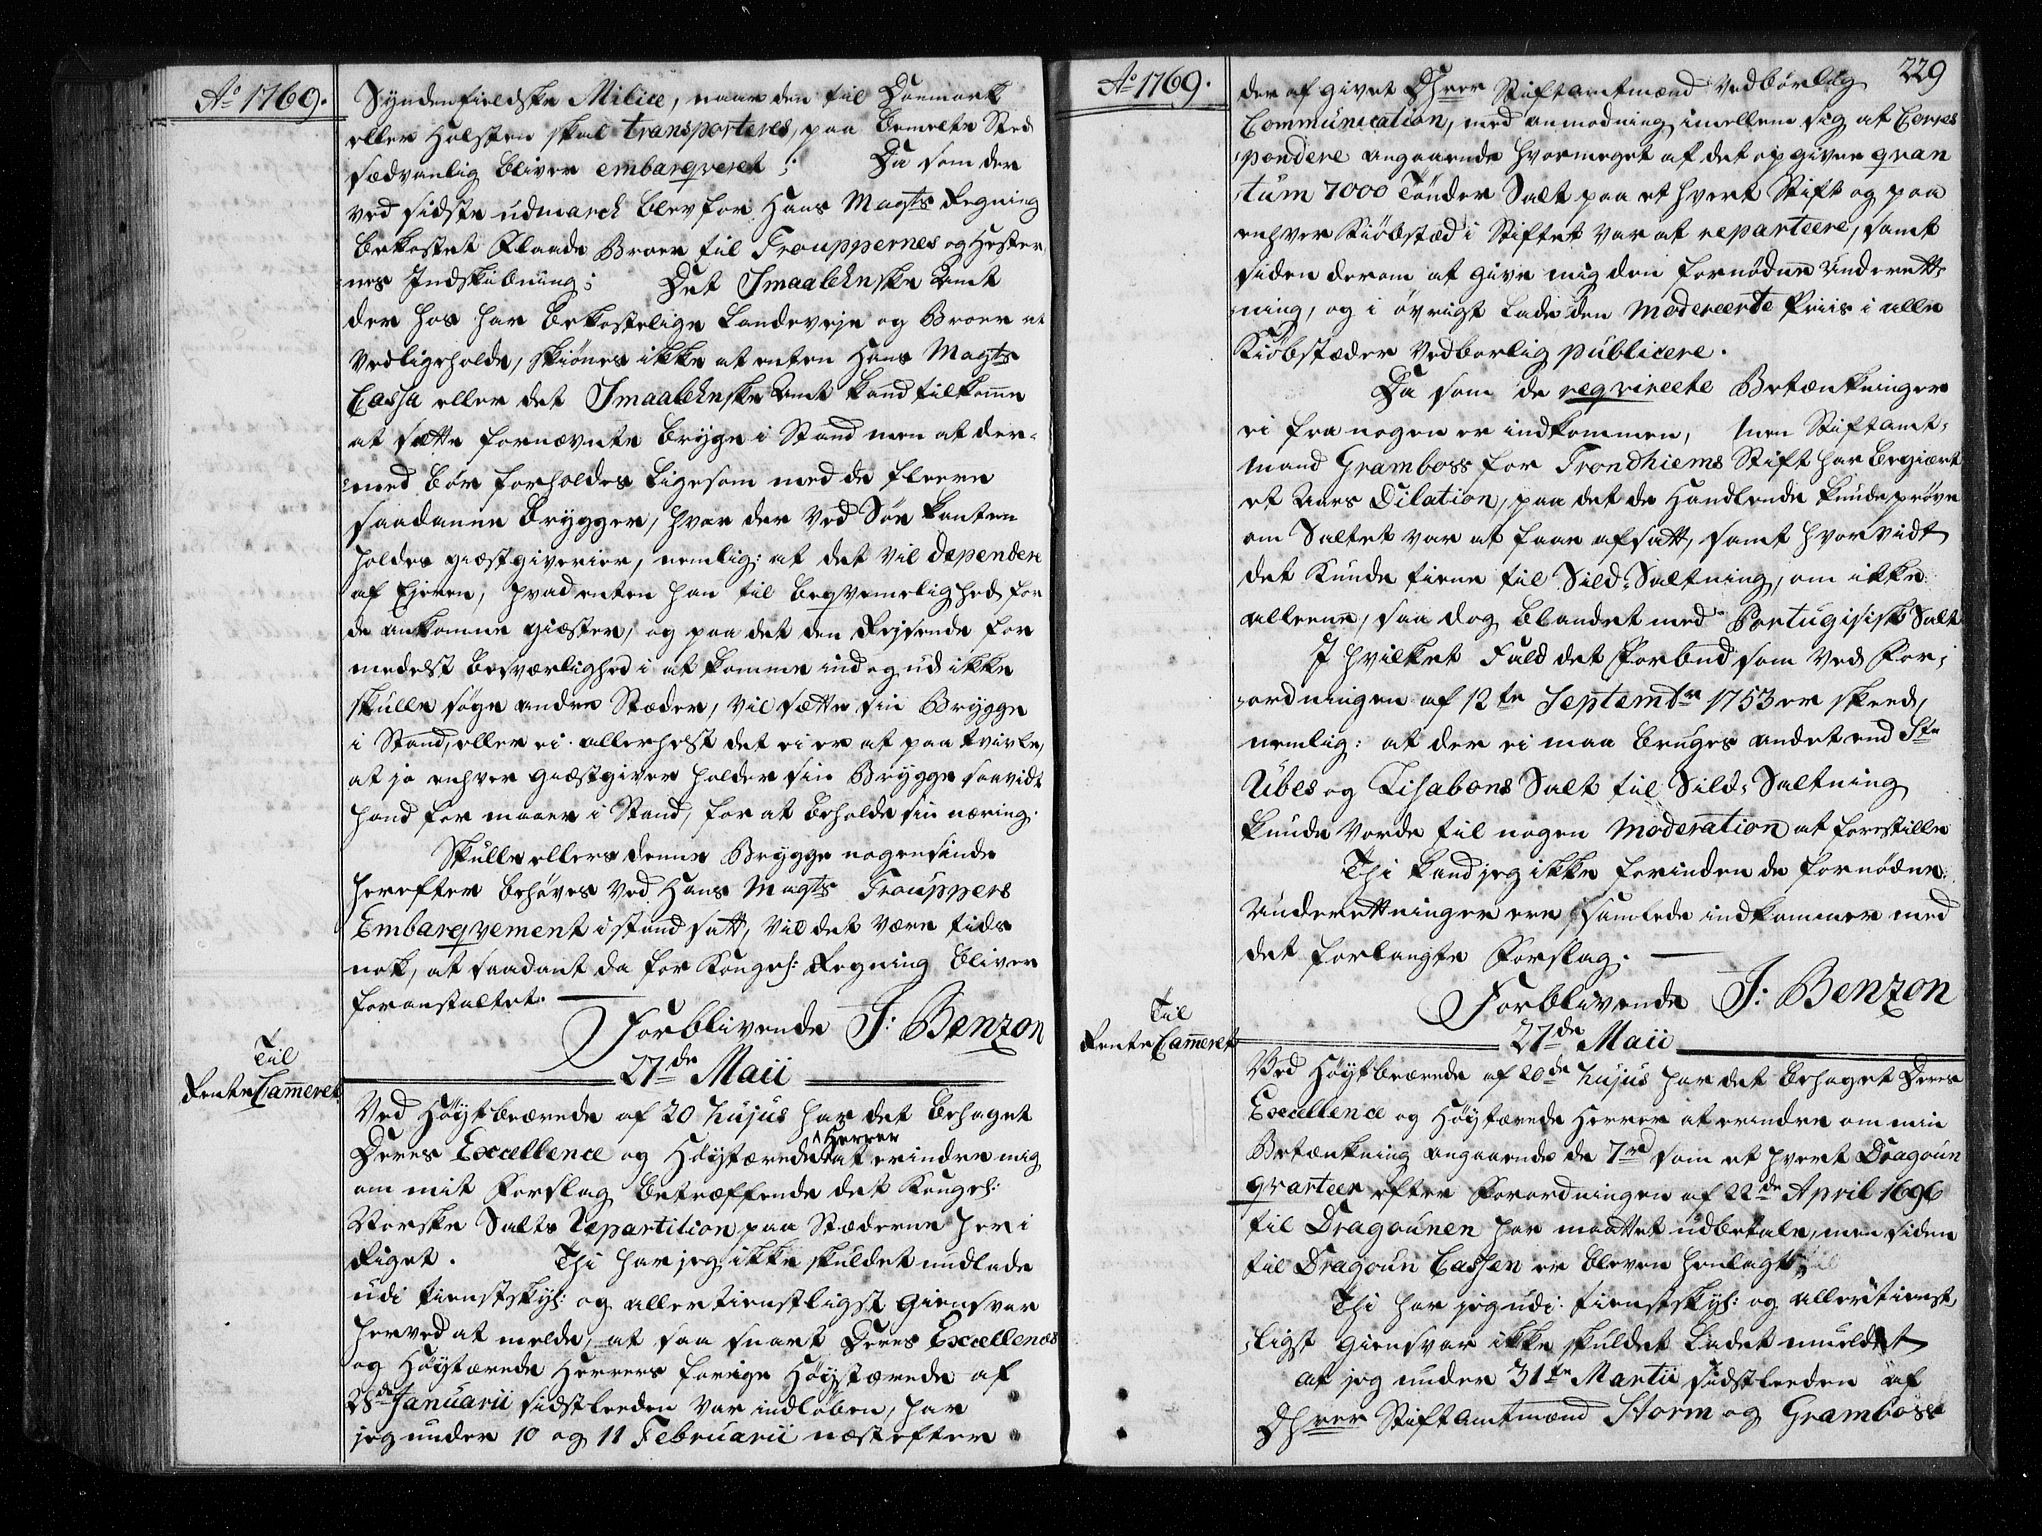 Ao 1769.
Syndenfieldske Milice, naar den til Danmark
eller Holsten skal transporteres, paa bemelte Sted
sædvanlig bliver embarqveret; Da som der
ved sidste udmarch blev for Hans Mayts Regning
bekostet Flaade Broer til Trouppernes og Hester-
nes Indskibning; Det Smaalehnske Amt
der hos har bekostelige Landeveje og Broer at
vedligeholde, skiønes ikke at enten Hans Mayts
Cassa eller det Smaalehnske Amt kand tilkomme
at sætte fornævnte brygge i Stand men at der-
med bør forholdes ligesom med de fleere
saadanne brygger, hvor der ved Søe kanten
holdes giæstgiverier, nemlig: at det vil dependere
af Ejeren, hvad enten han til beqvemelighed for
de ankomne giæster, og paa det den Rejsende for
medelst besværlighed i at komme ind og ud ikke
skulle søge andre Stæder, vil sætte sin Brygge
i Stand, eller ei. allerhelst det ei er at paa tvivle,
at jo enhver giæstgiver holder sin Brygge saavidt
hand formaaer i Stand, for at beholde sin næring.
Skulle ellers denne Brygge nogensinde
herefter behøves ved Hans Mayts Trouppers
Embarqvement istandsatt, vil det være tids
nok, at saadant da for Kongel: Regning bliver
foranstaltet.
Forblivende J: Benzon
27de Maii
Til
Rente Cammeret
Ved Høystbeærede af 20 hujus har det behaget
Deres Excellence og Høystærede Herrer at erindre mig
om mit Forslag betræffende det Kongel:
Norske Salts Repartition paa Stæderne her i
Riget. Thi har jeg ikke skuldet undlade
udi tienstskyl: og allertienstligst Giensvar
herved at melde, at saa snart Deres Excellences
og Høystærede Herrers forrige Høystærede af
28de Januarii sidstleeden var indløben, har
jeg under 10 og 11 Februarii næstefter
Ao 1769.
229
deraf givet Dhrer Stiftamtmænd vedbørlig
Communication, med anmodning imellem sig at Corres
pondere angaaende hvormeget af det opgivne qvan
tum 7000 Tønder Salt paa et hvert Stift og paa
enhver Kiøbstæd i Stiftet var at reparteere, samt
siden derom at give mig den fornødne Underrett-
ning, og i øvrigt lade den modereerte Priis i alle
Kiøbstæder vedborlig publicere.
Da som de reqvireete Betænkninger
ei fra nogen er indkommen, men Stiftamt-
mand Gramboss for Trondhiems Stift har begiært
et Aars Dilation, paa det de Handlende kunde prøve
om Saltet var at faae afsatt, samt hvorvidt
det kunde tiene til Sild-Saltning, om ikke
alleene, saa dog blandet med Portugisisk Salt
I hvilket Fald det Forbud som ved For-
ordningen af 12te Septembr 1753 er skeed,
nemlig: at der ei maa bruges andet end Ste
Ubes og Lisabons Salt til Sild-Saltning
kunde vorde til nogen moderation at forestille
Thi kand jeg ikke forinden de fornødne
Underettninger ere samlede indkommer med
det forlangte Forslag.
Forblivende J: Benzon
27de Maii
Til
Rente Cammeret
Ved Høystbeærede af 20de hujus har det behaget Deres
Excellence og Høystærede Herrer at erindre om min
Betænkning angaaende de 7rd som et hvert Dragoun
qvarteer efter Forordningen af 22de April 1696
til Dragounen har maattet udbetale, men siden
til Dragoun Cassen er bleven henlagt;
Thi har jeg udi tienstskyl: og allertienst-
ligst Giensvar ikke skuldet ladet umeldet
at jeg under 31te Martii sidstleeden af
Dhrer Stiftamtmænd Storm og Gramboss